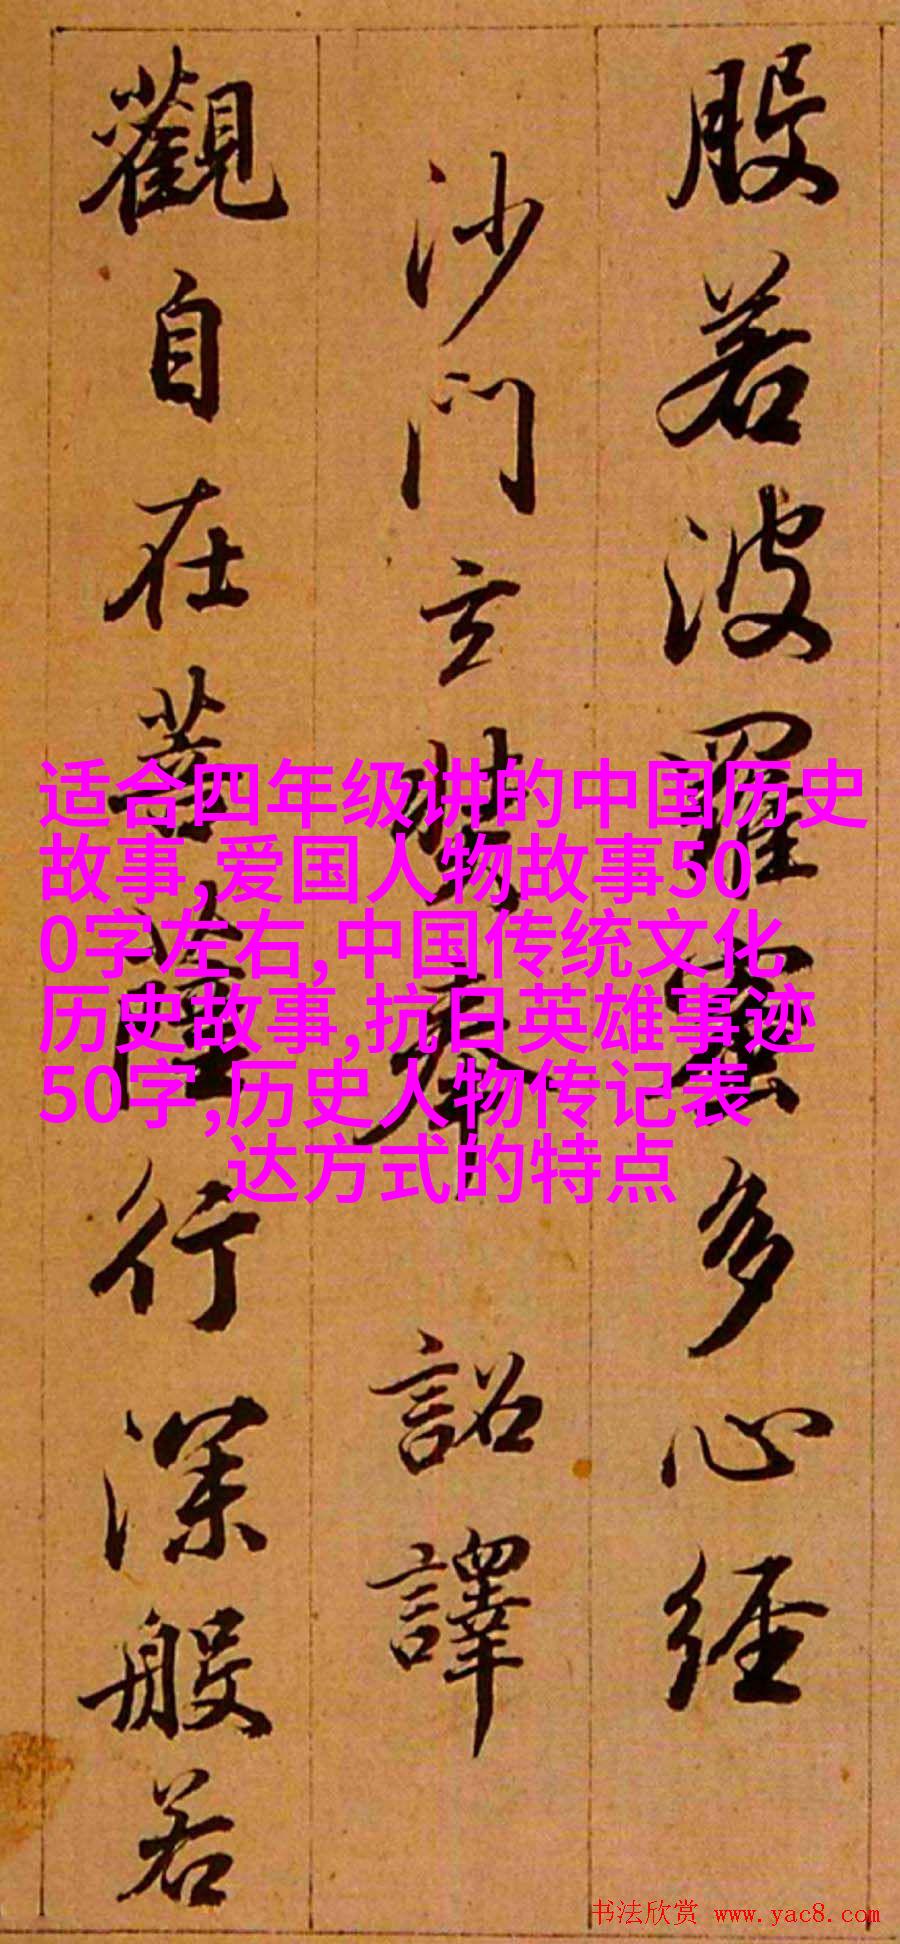 般若波羅蜜多心經
沙門玄奘奉 詔譯
觀自在菩薩行深般若
适合四年级讲的中国历史
故事,爱国人物故事50
0字左右,中国传统文化
历史故事,抗日英雄事迹
50字,历史人物传记表
达方式的特点
书法欣赏 www.yac8.com